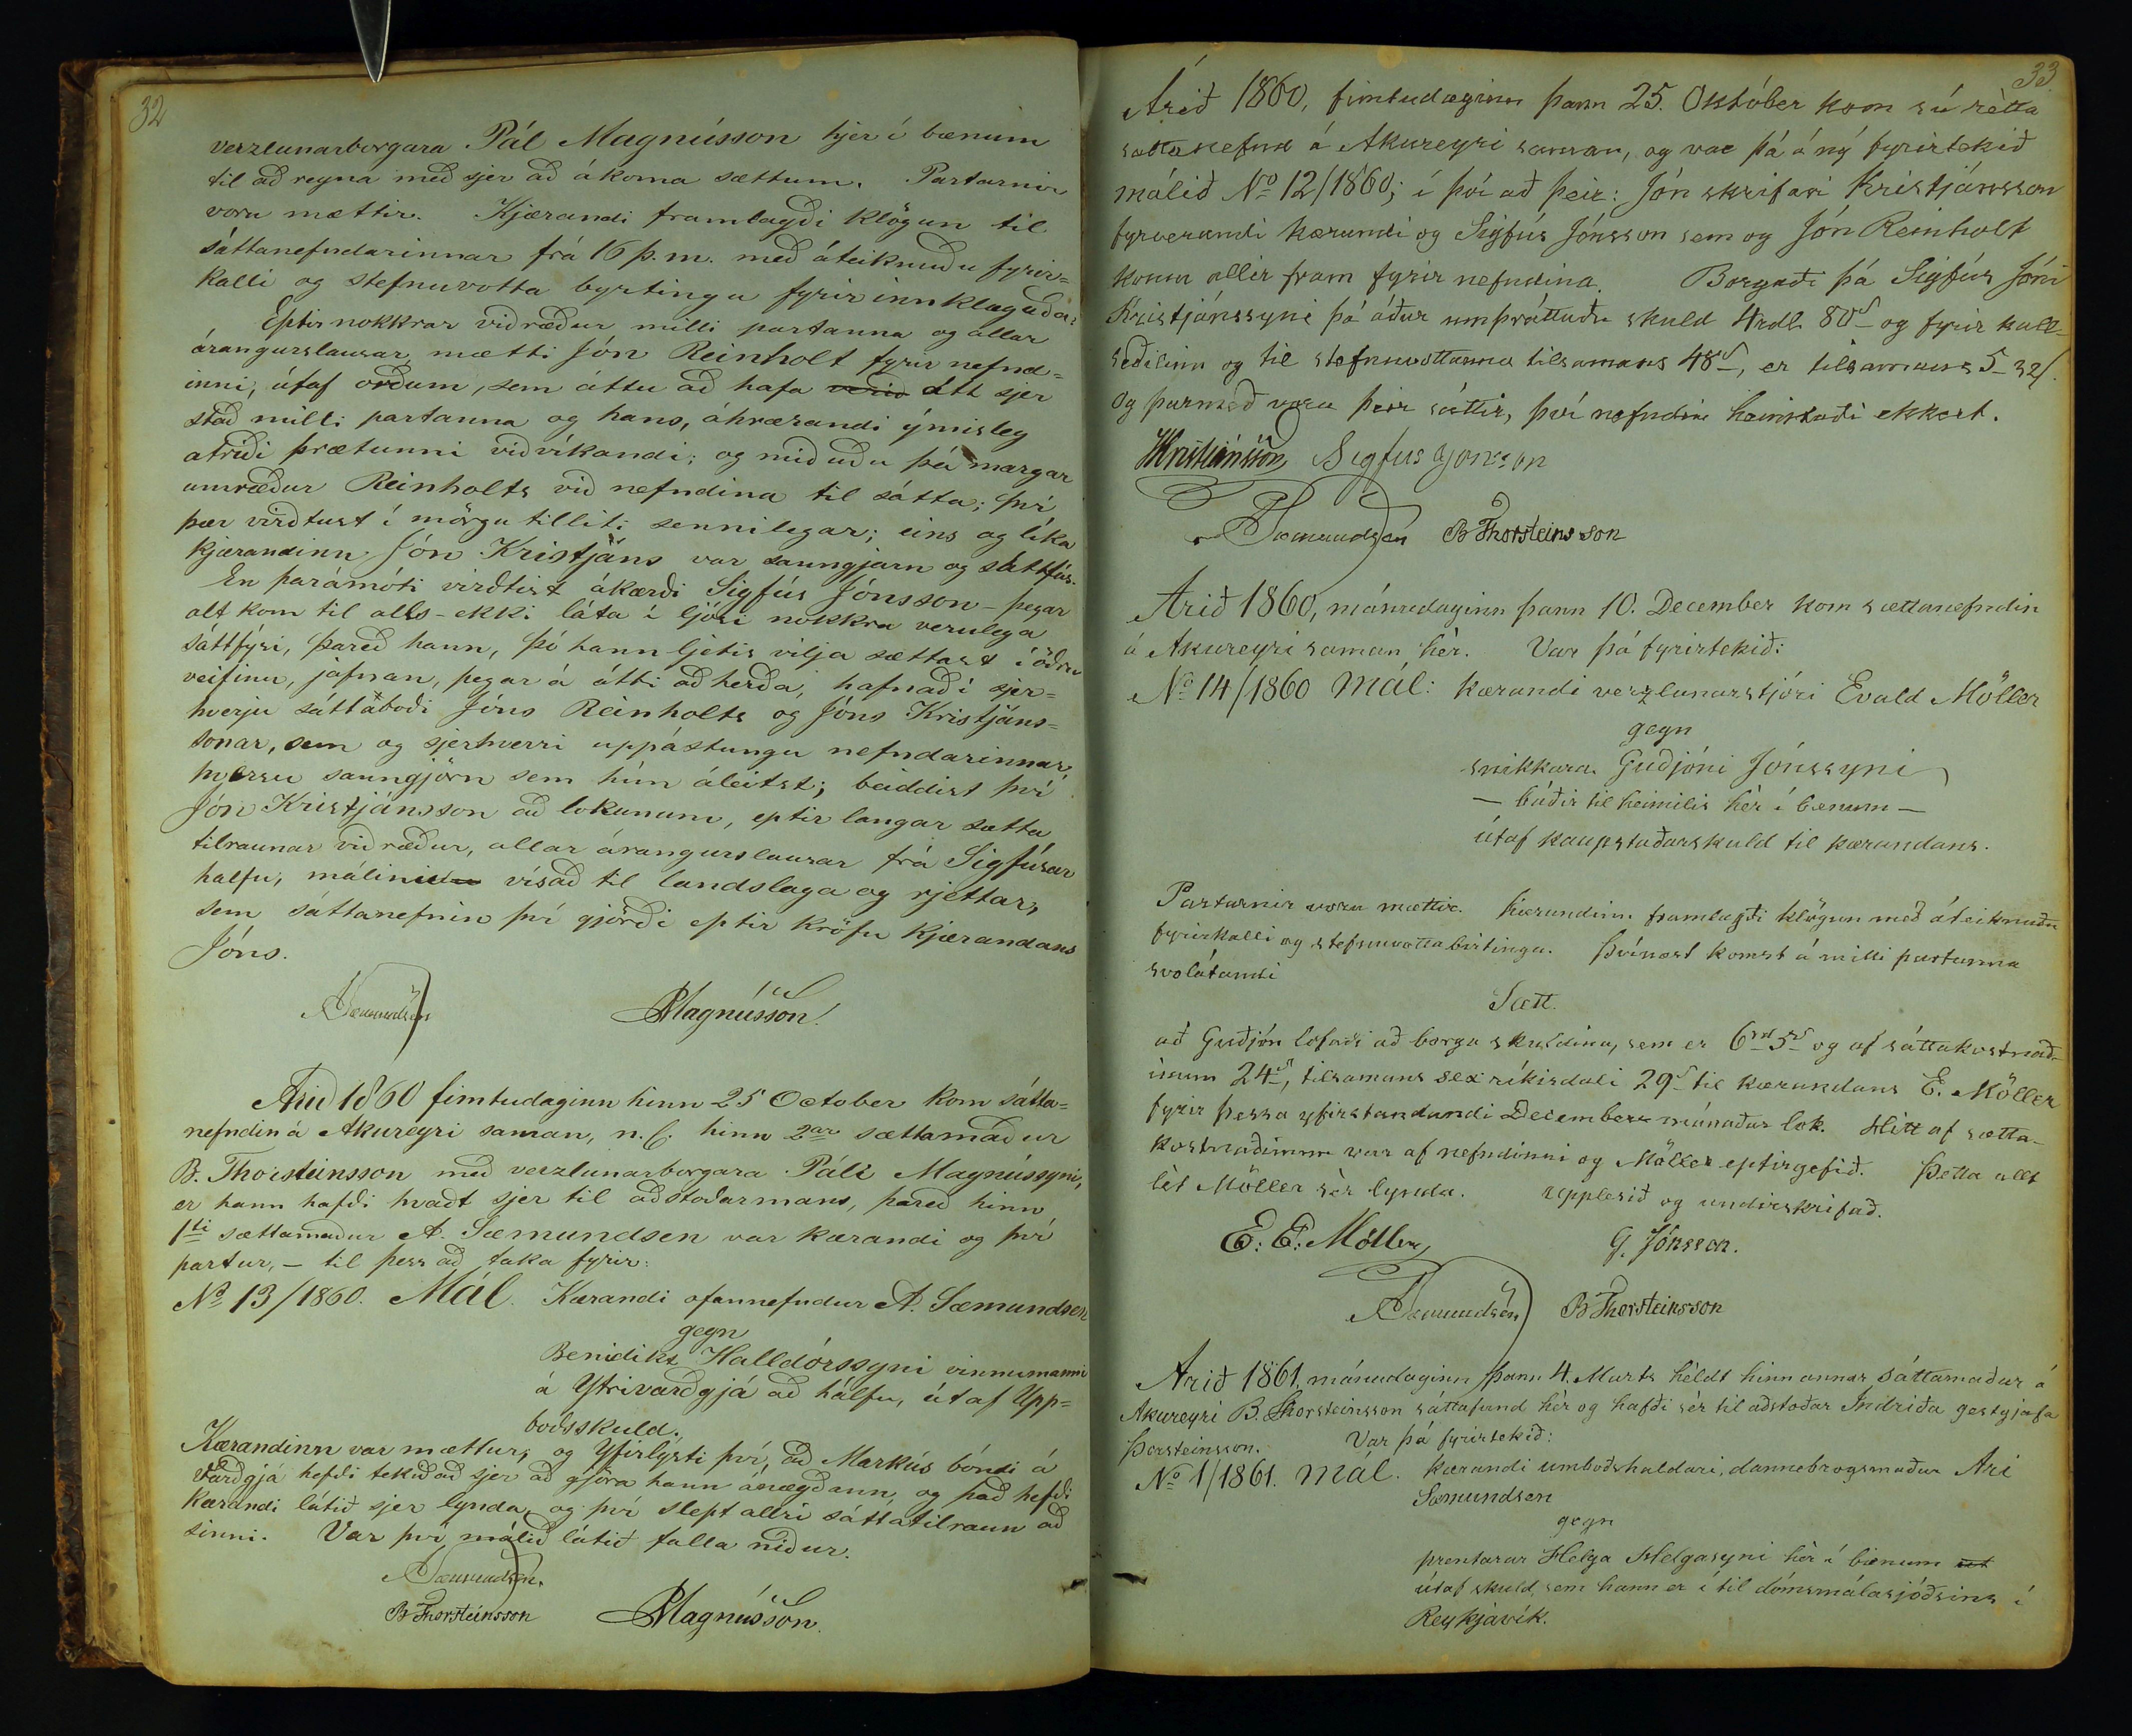 32
verzlunarborgara Pál Magnússon hjer í bænum
til að reyna með sjer að ákoma sættum. Partarnir
voru mættir. Kjærandi framlagði klögun til
sáttanefndarinnar frá 16 þ.m. með áteiknuðu fyrir=
kalli og stefnuvotta byrtingu fyrir innklagaða.
Eptir nokkrar viðræður milli partanna og allar
árangurslausar, mætti Jón Reinholt fyrir nefnd=
inni, útaf orðum, sem áttu að hafa verið átt sjer
stað milli partanna og hans, áhrærandi ýmisleg
atriði þrætunni viðvíkandi; og miðuðu þá margar
umræður Reinholts við nefndina til sátta; því
þær virðtust í mörgu tilliti sennilegar; eins og líka
kjærandinn Jón Kristjáns var sanngjarn og sáttfús.
En þarámóti virðtist ákærði Sigfús Jónsson – þegar
alt kom til alls – ekki láta í ljósi nokkra verulega
sáttfýsi, þareð hann, þó hann ljetis vilja sættast í öðru
veifinu, jafnan, þegar á átti að herða, hafnaði sjer=
hverju sáttaboði Jóns Reinholts og Jóns Kristjáns=
sonar, sem og sjerhverri uppástungu nefndarinnar,
hversu sanngjörn sem hún áleitst; beiddist því
Jón Kristjánsson að lokunum, eptir langar sætta
tilraunar viðræður, allar árangurslausar frá Sigfúsar
halfu, málinu vísað til landslaga og rjettar,
sem sáttanefnin því gjörði eptir kröfu Kjærandans
Jóns.
ASæmundsen PMagnússon.
Arið 1860 fimtudaginn hinn 25 October kom sátta=
nefndin á Akureyri saman, n.l. hinn 2ar sættamaður
B. Thorsteinsson með verzlunarborgara Páli Magnússyni,
er hann hafði hvadt sjer til aðstoðarmans, þareð hinn
1ti sættamaður A. Sæmundsen var kærandi og því
partur, – til þess að taka fyrir:
No 13/1860. Mál. Kærandi ofannefndur A. Sæmundsen
gegn
Benidikt Halldórssyni vinnumanni
á Ytrivarðgjá að hálfu, útaf Upp=
boðsskuld.
Kærandinn var mættur, og Yfirlýsti því, að Markús bóndi á
Varðgjá hefði tekið að sjer að gjöra hann ánægðann, og það hefði
Kærandi látið sjer lynda, og því slept allri sáttatilraun að
sinni. Var því málið látið falla niður.
ASæmundsen.
B Thorsteinsson PMagnússon.
33
Árið 1860, fimtudæginn þann 25. Október kom sú rètta
sattanefnd á Akureyri saman, og var þá á ný fyrirtekið
málið No 12/1860; í því að þeir: Jón skrifari Kristjánsson
fyrverandi kærandi og Sigfús Jónsson sem og Jón Reinholt
komu allir fram fyrir nefndina. Borgaði þá Sigfús Jóni
Kristjánssyni þá áður umþráttuðu skuld 4rdl. 80s og fyrir kall-
seðilinn og til stefnuvottanna tilsamans 48s, er tilsamans 5 - 32s.
og þarmeð voru þeir sáttir, því nefndin heimtaði ekkert.
JKristiánsson Sigfus Jónsson
ASæmundsen B Thorsteinsson
Arið 1860, mánudaginn þann 10. December kom sættanefndin
á Akureyri saman hér. Var þá fyrirtekið:
No 14/1860 Mál: kærandi verzlunarstjóri Evald Möller
gegn
snikkara Guðjóni Jónssyni
– báðir til heimilis hèr í bænum –
útaf kaupstaðarskuld til kærandans.
Partarnir voru mættir. Kærandinn framlagði klögun með áteiknuðu
fyrirkalli og stefnuvottabirtingu. Þvínæst komst á milli partanna
svolátandi
Sætt.
að Guðjón lofaði að borga skuldina, sem er 6rd 5s og af sáttakostnað-
inum 24s, tilsamans sex ríkisdali 29s til kærandans E. Möller
fyrir þessa yfirstandandi December mánaðar lok. Hitt af sætta-
kostnaðinum var af nefndinni og Möller eptirgefið. Þetta allt
lèt Möller sèr lynda. Upplesið og undirskrifað.
E. E. Möller G. Jónsson.
ASæmundsen B Thorsteinsson
Arið 1861, mánudaginn þann 4. Marts hèldt hinn annar sáttamaður á
Akureyri B. Thorsteinsson sáttafund hèr og hafði sèr til aðstoðar Indriða gestgjafa
Þorsteinsson. Var þá fyrirtekið:
No 1/1861. Mál. kærandi umboðshaldari, dannebrogsmaður Ari
Sæmundsen
gegn
prentarar Helga Helgasyni hèr í bænum
útaf skuld, sem hann er í til dómsmálasjóðsins í
Reykjavík.